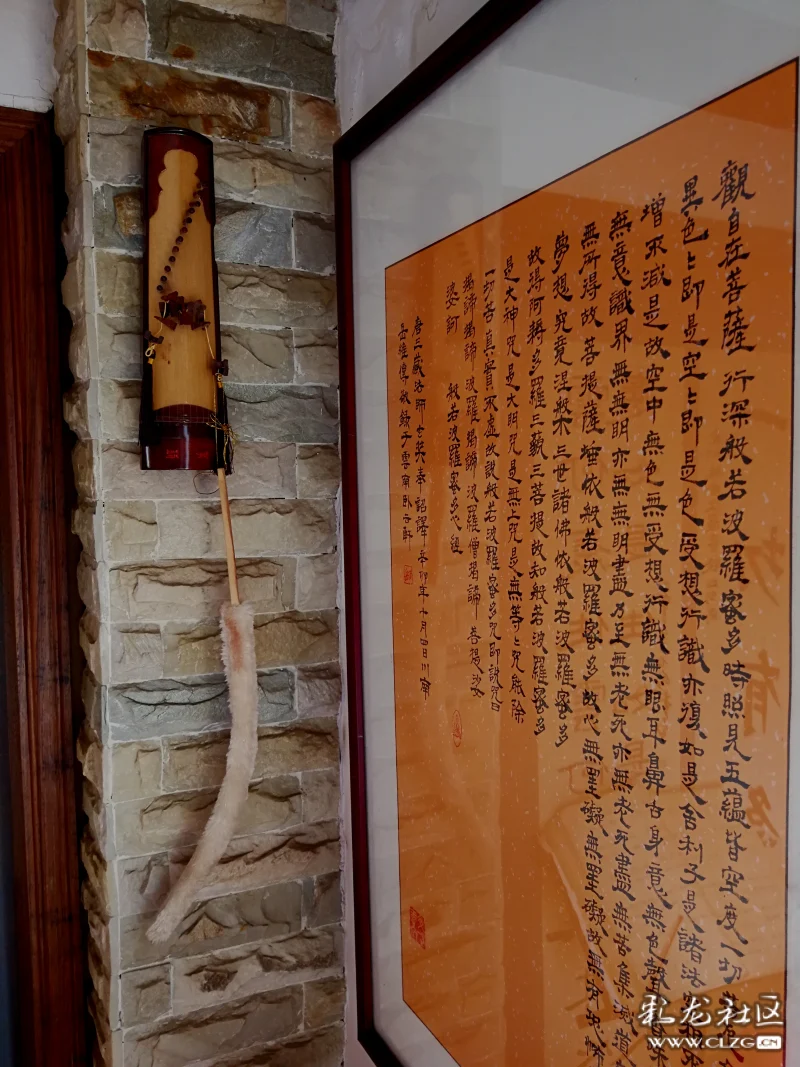 觀自在菩薩行深般若波羅蜜多時照見五蘊皆空度一切
異色々即是空々即是色受想行識亦復如是舍利子是諸法
增不減是故空中無色無受想行識無眼耳鼻舌身意無色聲
無意識界無無明亦無無明盡乃至無老死亦無老死盡無苦集滅道
無所得故菩提薩埵依般若波羅蜜多故心無罣礙無罣礙故無有恐怖
夢想究竟涅槃三世諸佛依般若波羅蜜多
故得阿耨多羅三藐三菩提故知般若波羅蜜多
是大神咒是大明咒是無上咒是無等々咒能除
一切苦真實不虛故說般若波羅蜜多咒即說咒曰
揭諦揭諦波羅揭諦波羅僧揭諦 菩提沙
婆訶 般若波羅蜜多心經
唐三藏法師玄奘奉詔譯辛卯年十月四日川南
岳維傳敬錄于雲南卧云軒
彩龙社区
WWW.CLZG.CN